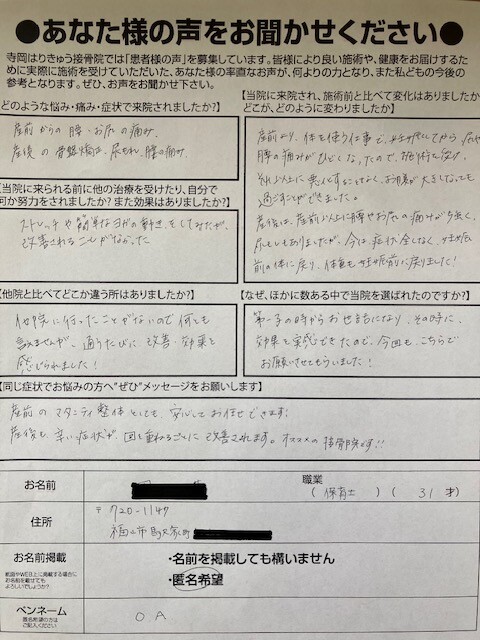 ●あなた様の声をお聞かせください●
寺岡はりきゅう接骨院では「患者様の声」を募集しています。皆様により良い施術や、健康をお届けするた
めに実際に施術を受けていただいた、あなた様の率直なお声が、何よりの力となり、また私どもの今後の
参考となります。ぜひ、お声をお聞かせ下さい。
どのような悩み・痛み・症状で来院されましたか?】
産前からの腰・お尻の痛み。
産後の骨盤矯正、尿もれ、腰の痛み。
【当院に来られる前に他の治療を受けたり、自分で
何か努力をされましたか? また効果はありましたか?】
ストレッチや簡単なヨガの動きをしてみたが、
改善されることがなかった
【当院に来院され、施術前と比べて変化はありましたか
どこが、どのように変わりましたか】
産前より、体を使う仕事で、妊娠してから尻や
腰の痛みがひどくなったので、施術を受け、
それ以上に悪化することなく、お腹が大きくなっても
過ごすことができました。
産後は、産前以上に腰やお尻の痛みが強く、
尿もれもありましたが、今は症状全てなく、妊娠
前の体に戻り、体重も妊娠前に戻りました!
【他院と比べてどこか違う所はありましたか?】
他院に行ったことがないので何とも
言えませんが、通うたびに改善・効果を
感じられました!
【なぜ、ほかに数ある中で当院を選ばれたのですか?】
第一子の時からお世話になり、その時に、
効果を実感できたので、今回も、こちらで
お願いさせてもらいました!
【同じ症状でお悩みの方へ"ぜひ"メッセージをお願いします】
産前のマタニティ整体としても、安心してお任せできます。
産後も、辛い症状が、回を重ねるごとに改善されます。オススメの接骨院です!!
お名前
職業
( 保育士 ) ( 31 才)
住所
〒720-1147
福山市駅家町
お名前掲載
・名前を掲載しても構いません
・匿名希望
ペンネーム
匿名希望の方は
ご記入ください
O A